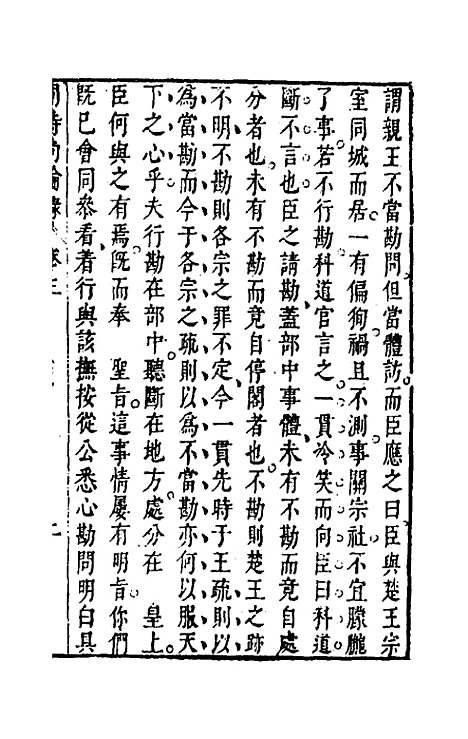 謂親王不當勘問但當體訪而臣應之曰臣與楚王宗
室同城而居一有偏狥禍且不測事關宗社不宜朦朧
了事若不行勘科道官言之一貫冷笑而向臣曰科道
斷不言也臣之請勘蓋部中事體未有不勘而竟自處
分者也未有不勘而竟自停閣者也不勘則楚王之跡
不明不勘則各宗之罪不定今一貫先時于王疏則以
為當勘而今于各宗之疏則以為不當勘亦何以服天
下之心乎夫行勘在部中聽斷在地方處分在　皇上
臣何與之有焉旣而奉　聖旨這事情屢有明旨你們
旣已會同叅看着行與該撫按從公悉心勘問明白具